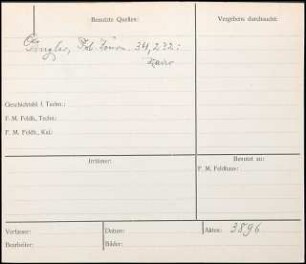 Benutzte Quellen:
Vergebens durchsucht:
Dingler, Pol. Journ. 34, 232:
Geschichtsbl. f. Techn.:
F. M. Feldh., Techn.:
F. M. Feldh., Kal.:
Irrtümer:
Benutzt zu:
F. M. Feldhaus:
Verfasser:
Datum:
Akten: 3896
Bearbeiter:
Bilder: